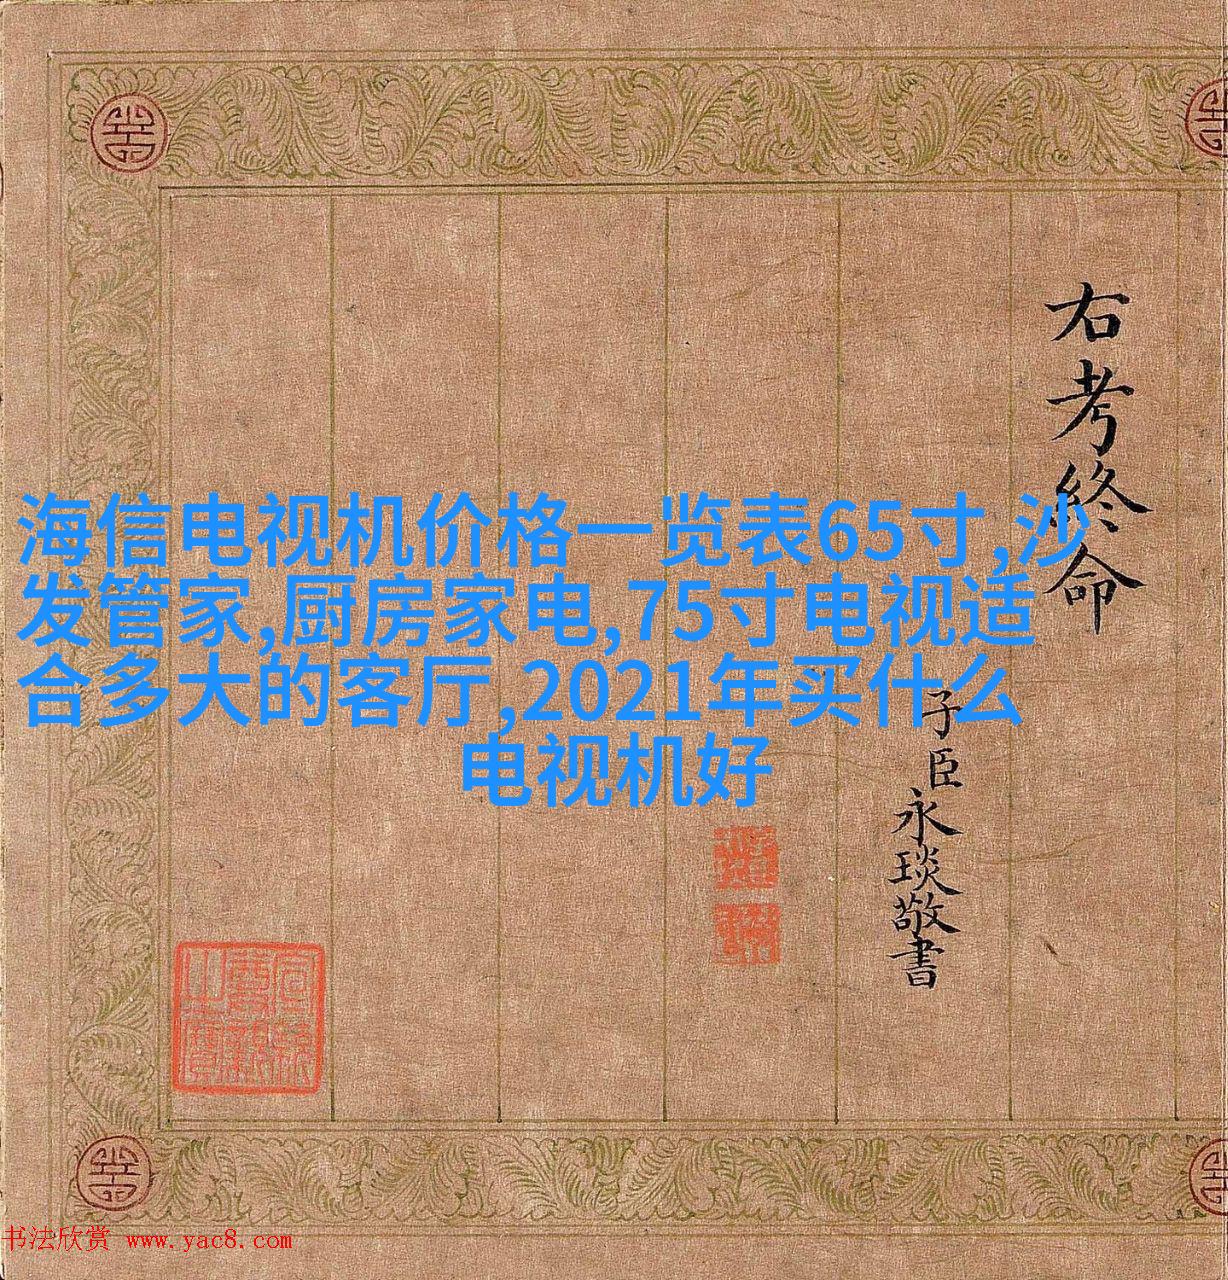 海信电视机价格一览表65寸,沙
发管家,厨房家电,75寸电视适
合多大的客厅,2021年买什么
电视机好
右考終命
子臣永琰敬書
书法欣赏 www.yac8.com